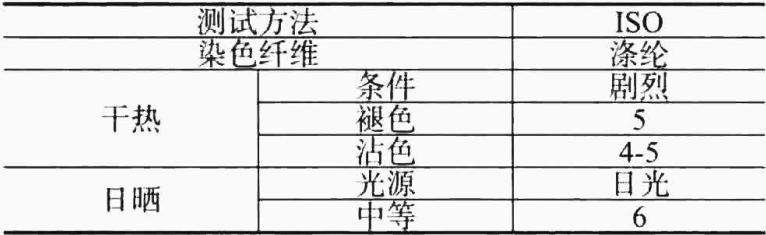 测试方法 ISO
染色纤维 涤纶
干热 条件 剧烈
褪色 5
沾色 4-5
日晒 光源 日光
中等 6